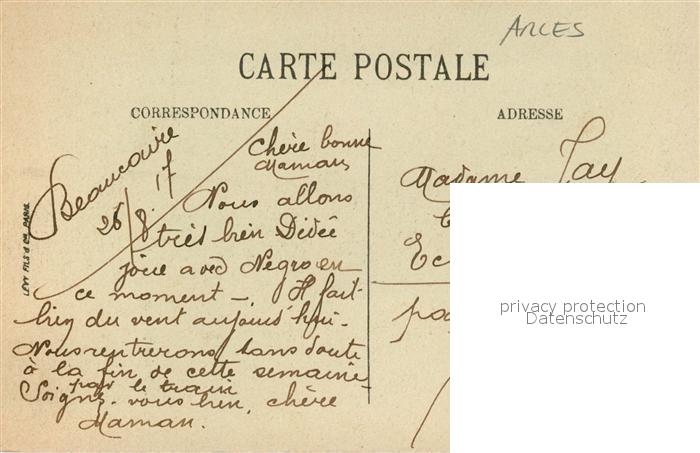 ARLES
CARTE POSTALE
CORRESPONDANCE
ADRESSE
Beaucaire
26/8.17
Chère bonne
Maman
Nous allons
très bien Dédée
joue avec Negro en
ce moment -. Il fait
bien du vent aujourd'hui.
Nous rentrerons sans doute
à la fin de cette semaine
par le train
Soignez-vous bien, chère
Maman.
Madame
Ec
pa
LEVY FILS & Cie, PARIS
privacy protection
Datenschutz